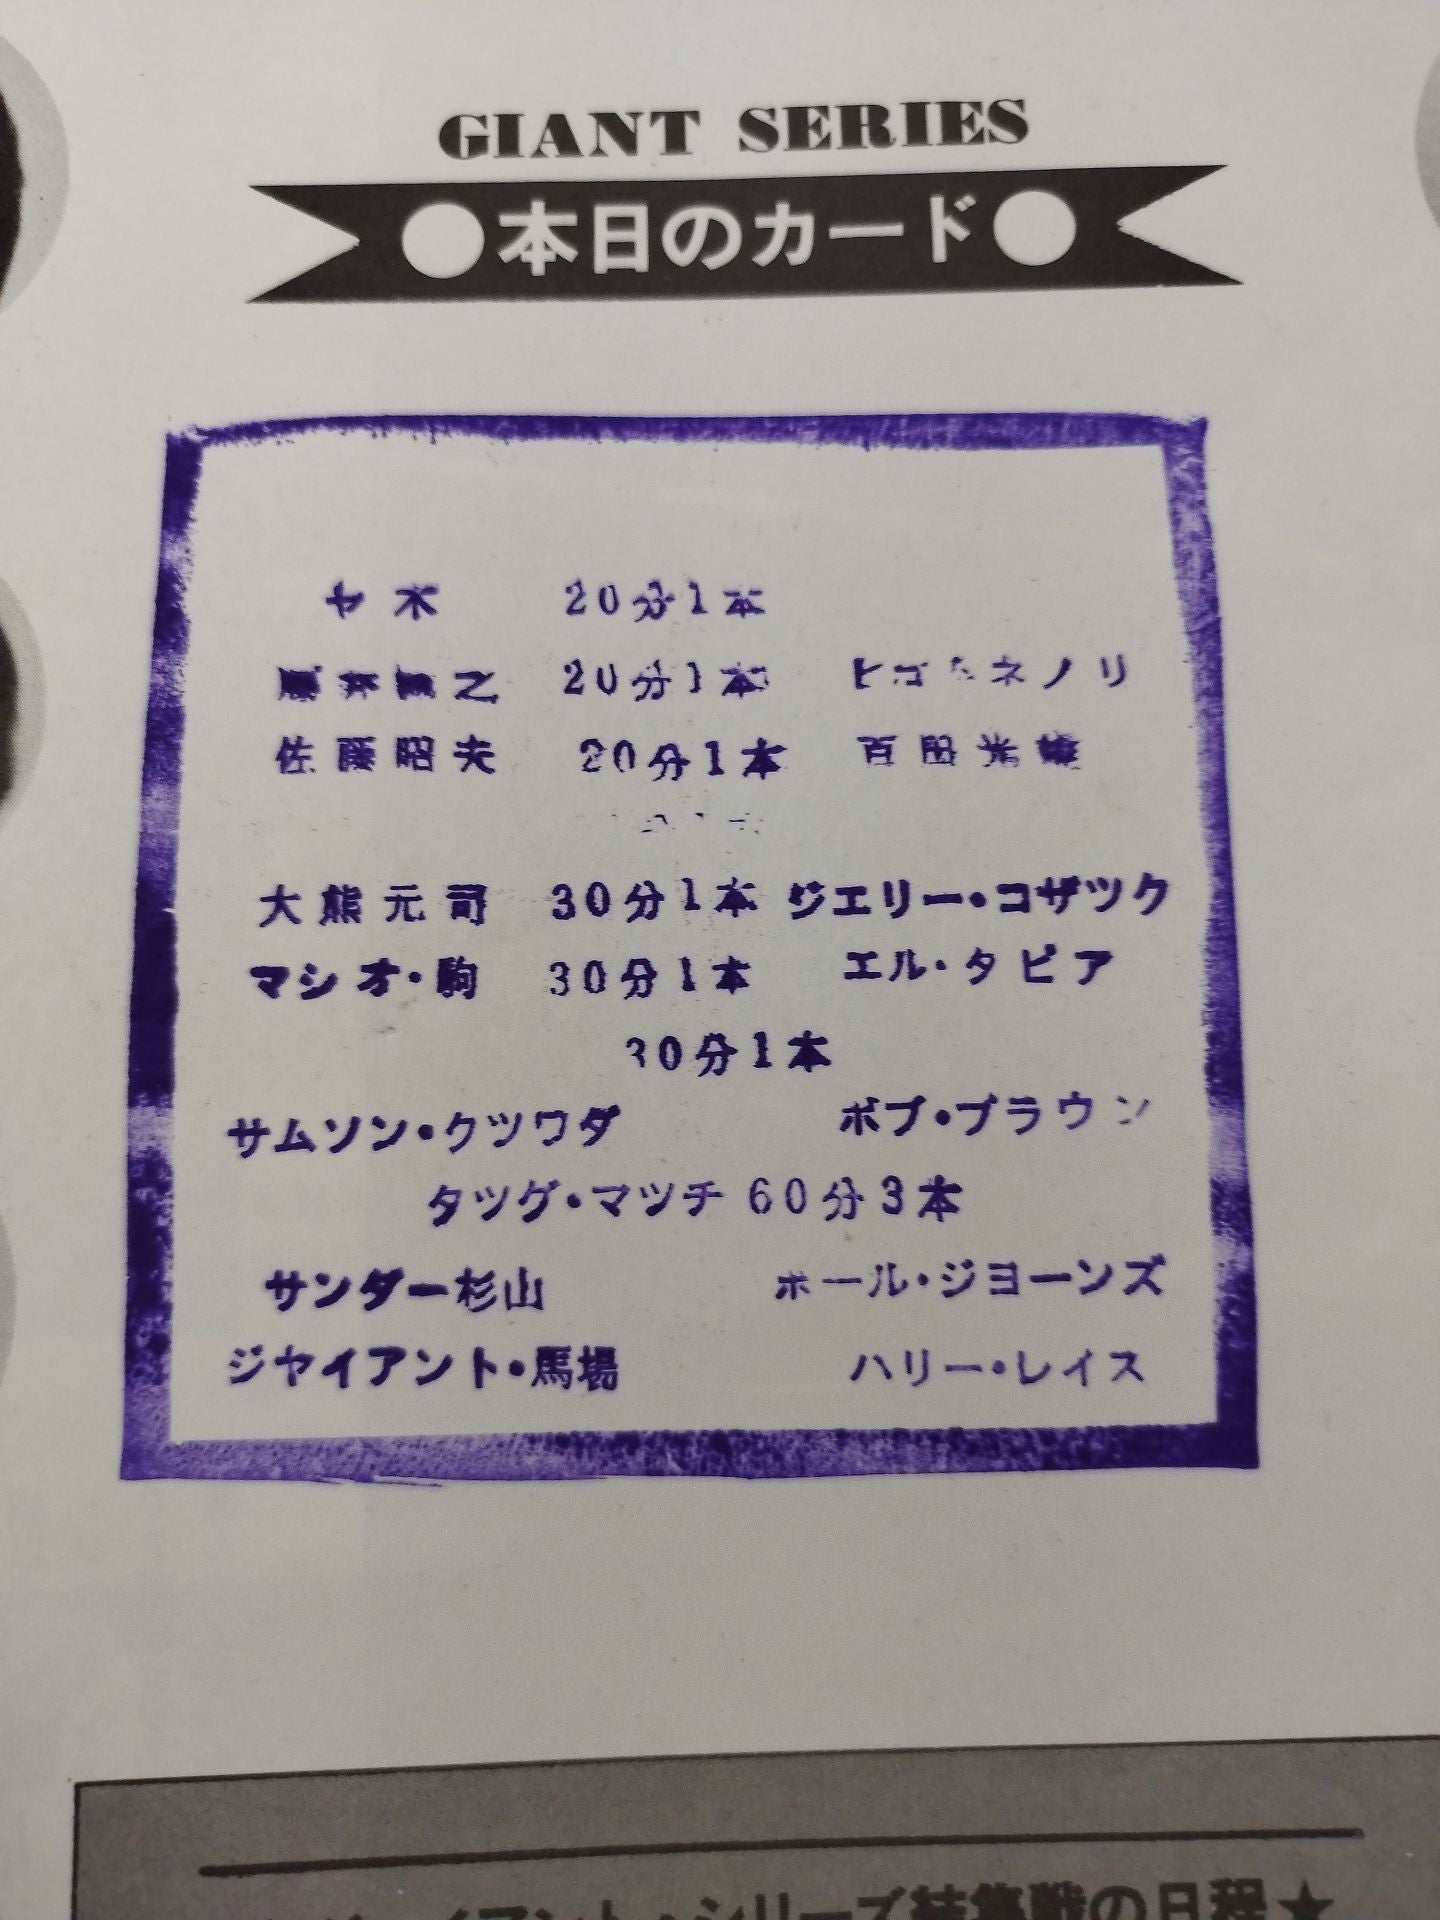 GIANT SERIES
●本日のカード●
20分1本
之 20分1本 ヒゴ ネノリ
佐藤昭夫 20分1本 百田光雄
大熊元司 30分1本 ジエリー・コザツク
マシオ・駒 30分1本 エル・タピア
30分1本
サムソン・クツワダ ボブ・ブラウン
タツグ・マツチ 60分3本
サンダー杉山 ポール・ジヨーンズ
ジヤイアント・馬場 ハリー・レイス
イアント・シリーズ結集戦の日程★